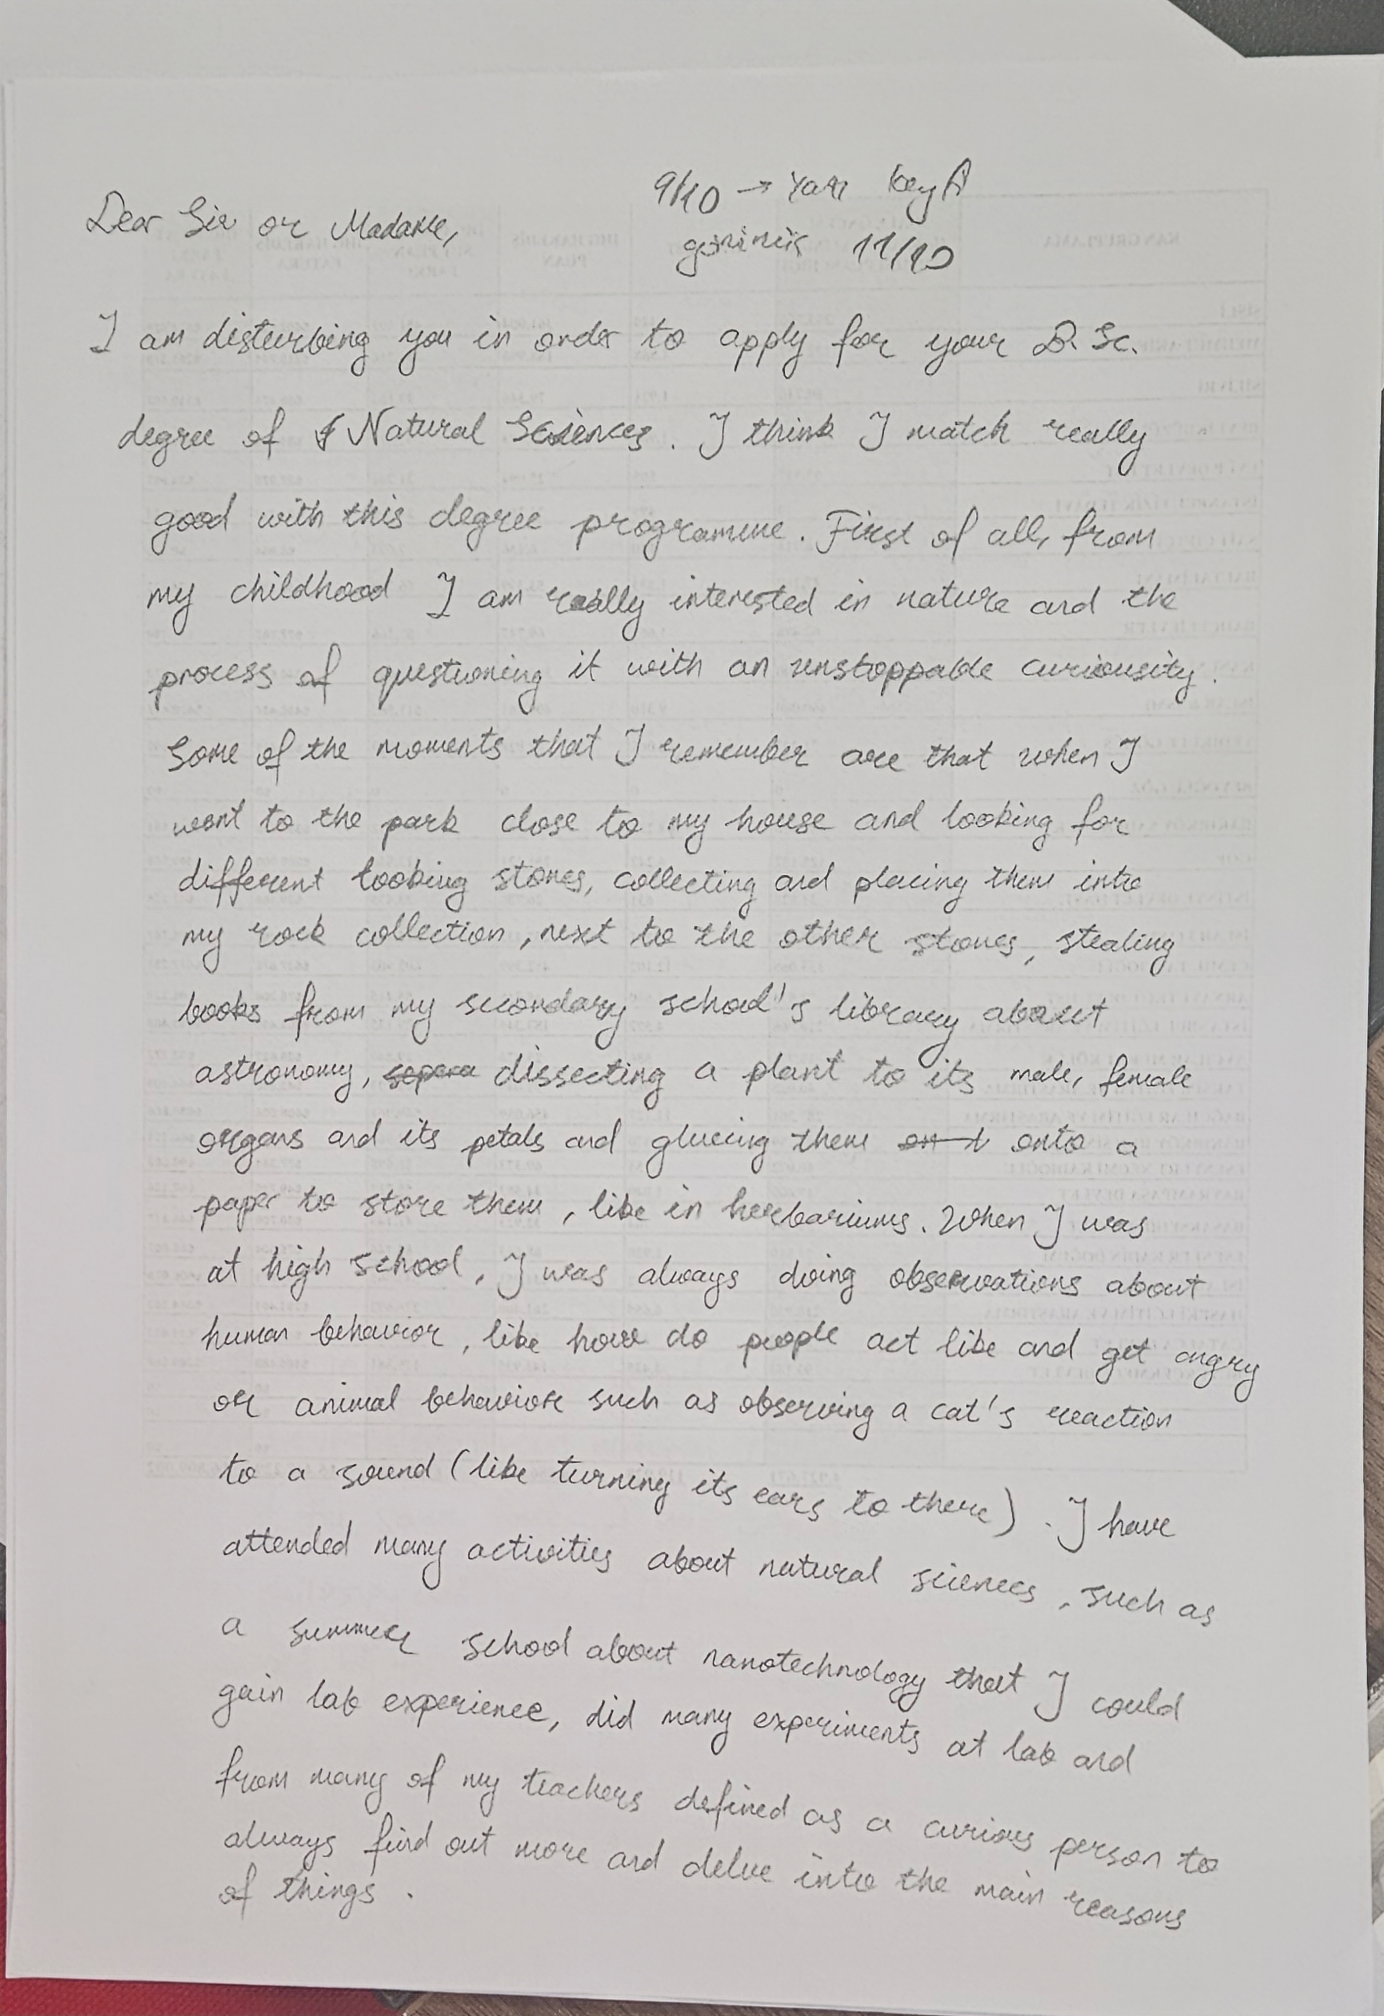 Dear Sir or Madame,
9/10 → Yarı key A
görünüş 11/10
I am disturbing you in order to apply for your B. Sc.
degree of Natural Sciences. I think I match really
good with this degree programme. First of all, from
my childhood I am really interested in nature and the
process of questioning it with an unstoppable curiousity.
Some of the moments that I remember are that when I
went to the park close to my house and looking for
different looking stones, collecting and placing them into
my rock collection, next to the other stones, stealing
books from my secondary school's library about
astronomy, sepera dissecting a plant to its male, female
organs and its petals and glueing them on t onto a
paper to store them, like in herbariums. When I was
at high school, I was always doing observations about
human behavior, like how do people act like and get angry
or animal behavior such as observing a cat's reaction
to a sound (like turning its ears to there). I have
attended many activities about natural sciences, such as
a summer school about nanotechnology that I could
gain lab experience, did many experiments at lab and
from many of my teachers defined as a curious person to
always find out more and delve into the main reasons
of things.